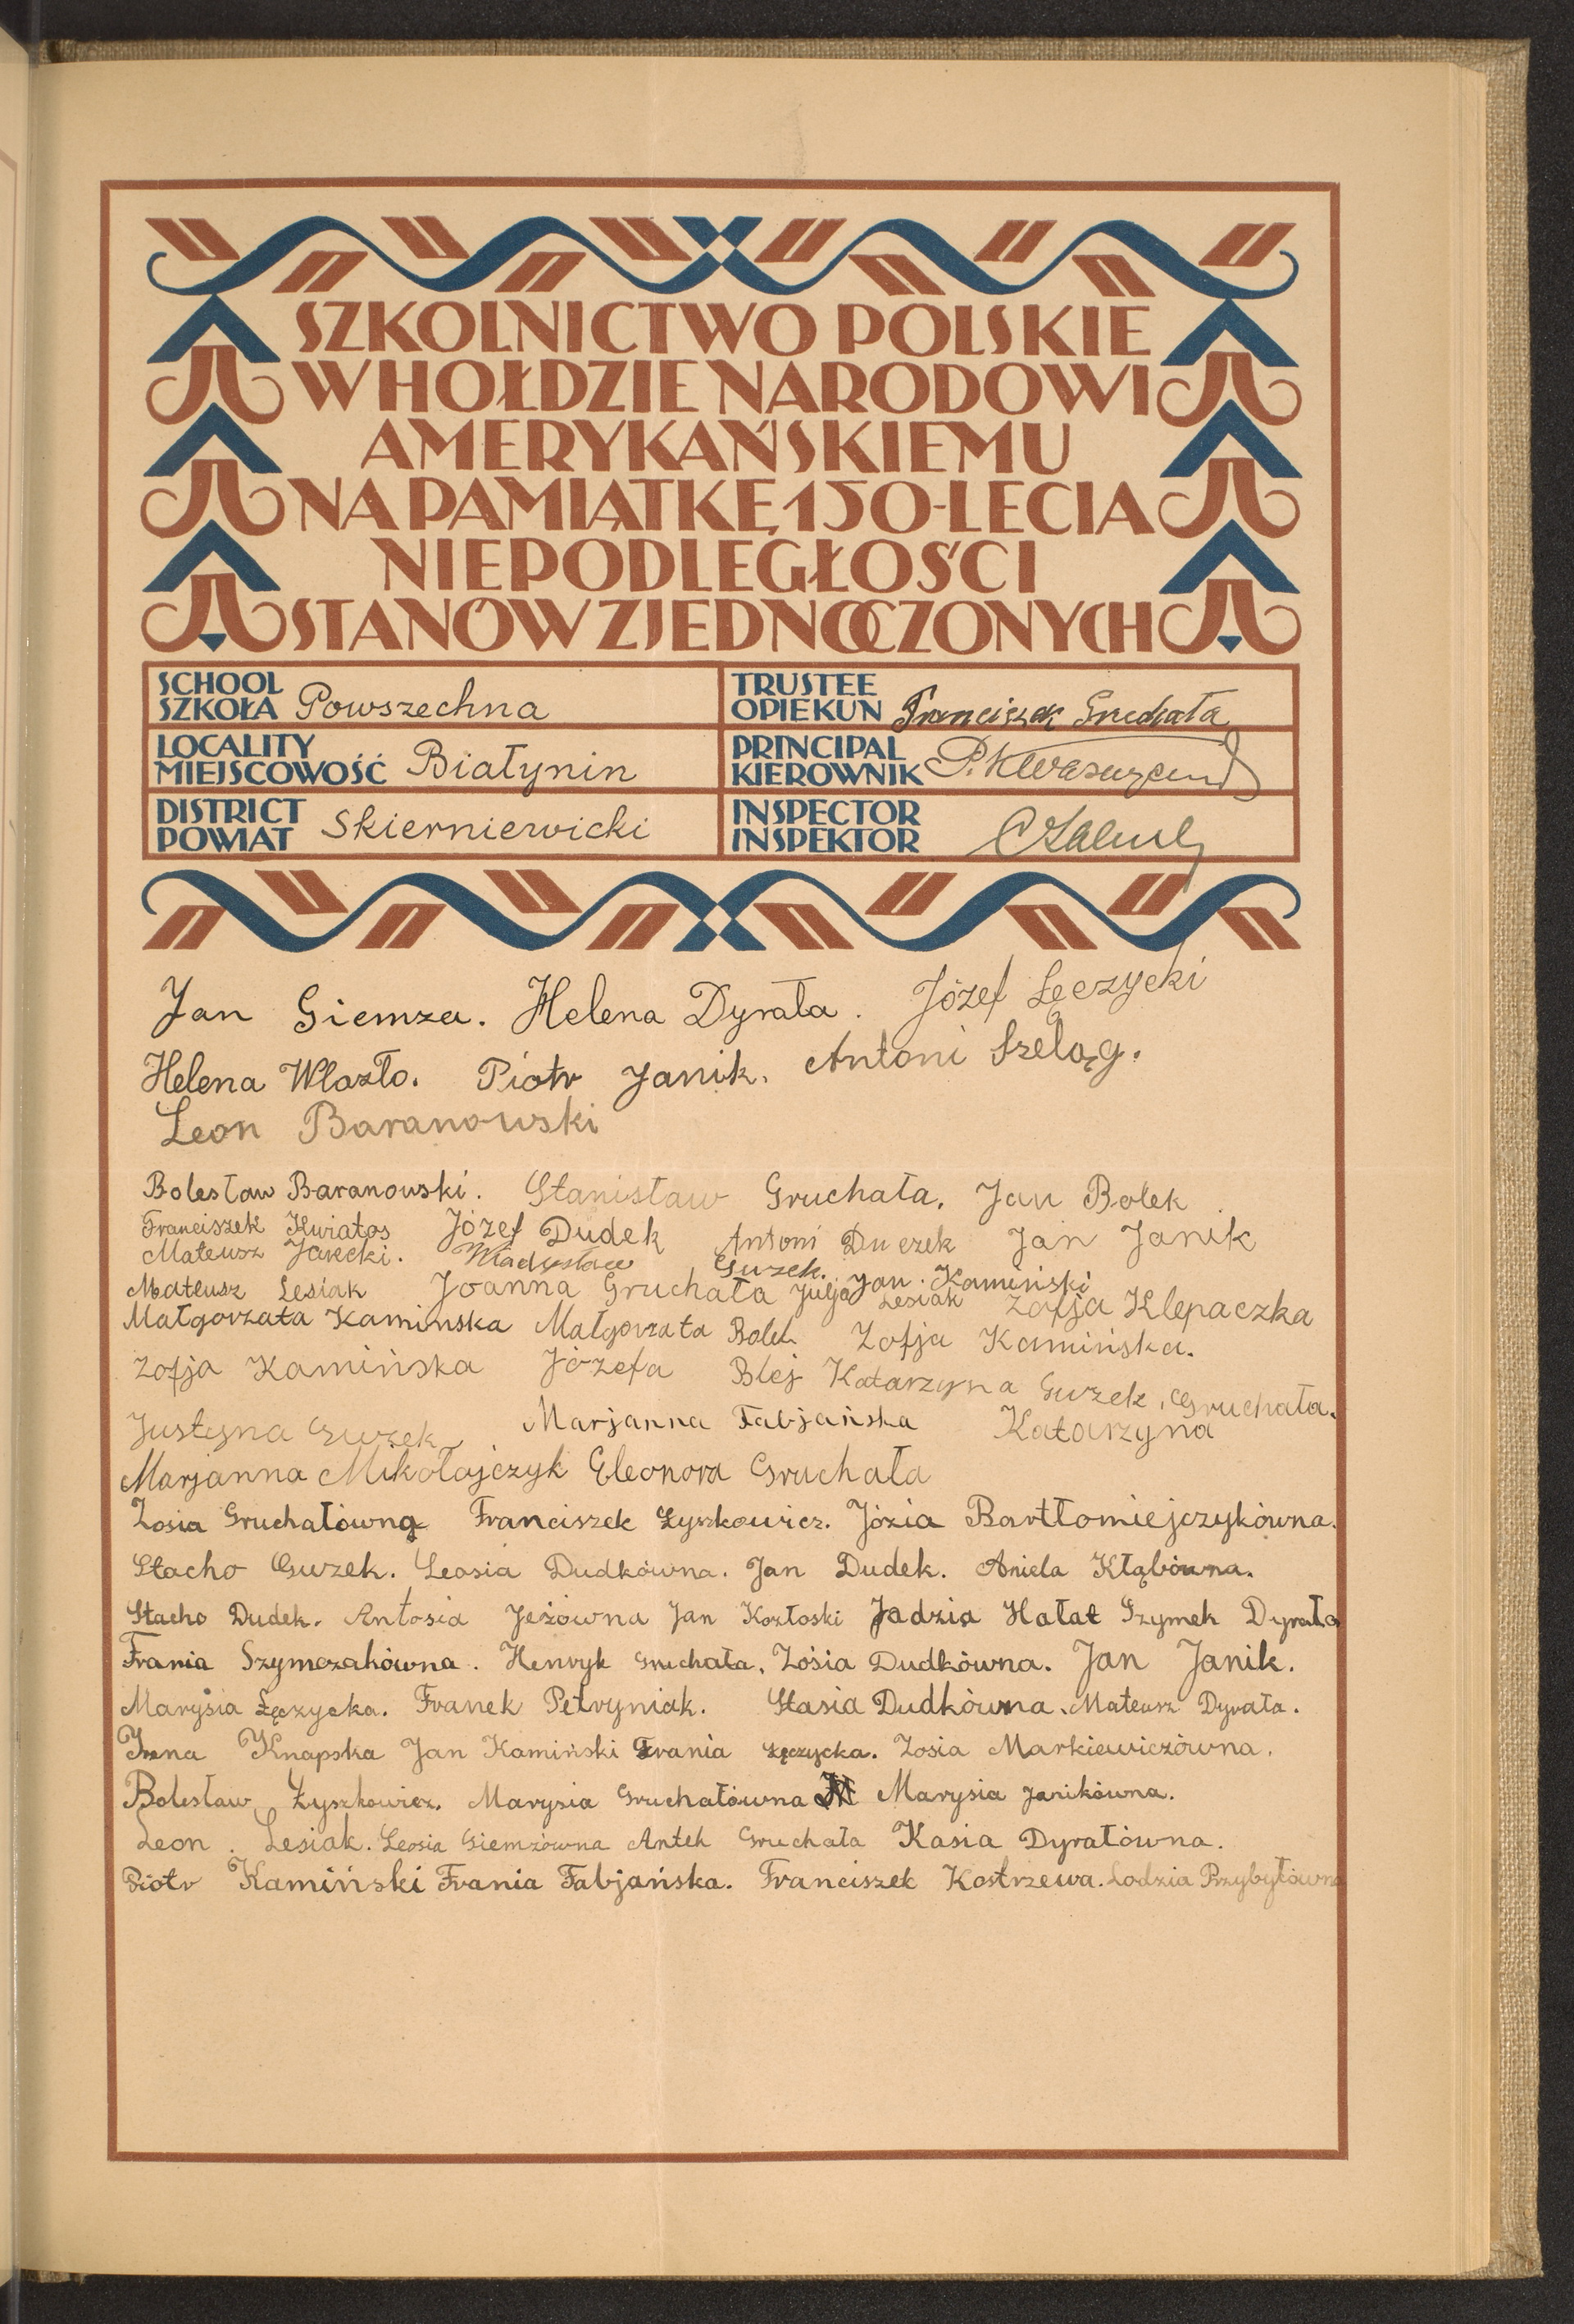 SZKOLNICTWO POLSKIE
W HOŁDZIE NARODOWI
AMERYKAŃSKIEMU
NA PAMIĄTKĘ 150-LECIA
NIEPODLEGŁOŚCI
STANÓW ZJEDNOCZONYCH
SCHOOL
SZKOŁA Powszechna
TRUSTEE
OPIEKUN Franciszek Gruchała
LOCALITY
MIEJSCOWOŚĆ Białynin
PRINCIPAL
KIEROWNIK
DISTRICT
POWIAT Skierniewicki
INSPECTOR
INSPEKTOR
Jan Giemza. Helena Dyrała. Józef Łęczycki
Helena Wlazło. Piotr Janik. Antoni Szeląg.
Leon Baranowski
Bolesław Baranowski. Stanisław Gruchała. Jan Bolek
Franciszek Kwiatos Józef Dudek Antoni Duczek Jan Janik
Mateusz Jarecki. Władysław Guzek. Jan Kamiński
Mateusz Lesiak Joanna Gruchała Julja Lesiak Zofja Klepaczka
Małgorzata Kamińska Małgorzata Bolek Zofja Kamińska.
Zofja Kamińska Józefa Blej Katarzyna Guzek, Gruchała.
Justyna Guzek Marjanna Fabjańska Katarzyna
Marjanna Mikołajczyk Eleonora Gruchała
Zosia Gruchałówna Franciszek Łyszkowicz. Józia Bartłomiejczykówna.
Stacho Guzek. Leosia Dudkówna. Jan Dudek. Aniela Kłąbówna.
Stacho Dudek. Antosia Jeżówna Jan Kozłoski Jadzia Hałat Szymek Dyrała
Frania Szymczakówna. Henryk Gruchała. Zósia Dudkówna. Jan Janik.
Marysia Łęczycka. Franek Petryniak. Stasia Dudkówna. Mateusz Dyrała.
Irena Knapska Jan Kamiński Frania Łęczycka. Zosia Markiewiczówna.
Bolesław Łyszkowicz. Marysia Gruchałówna Marysia Janikówna.
Leon Lesiak. Leosia Giemzówna Antek Gruchała Kasia Dyrałówna.
Piotr Kamiński Frania Fabjańska. Franciszek Kostrzewa. Lodzia Przybyłówna